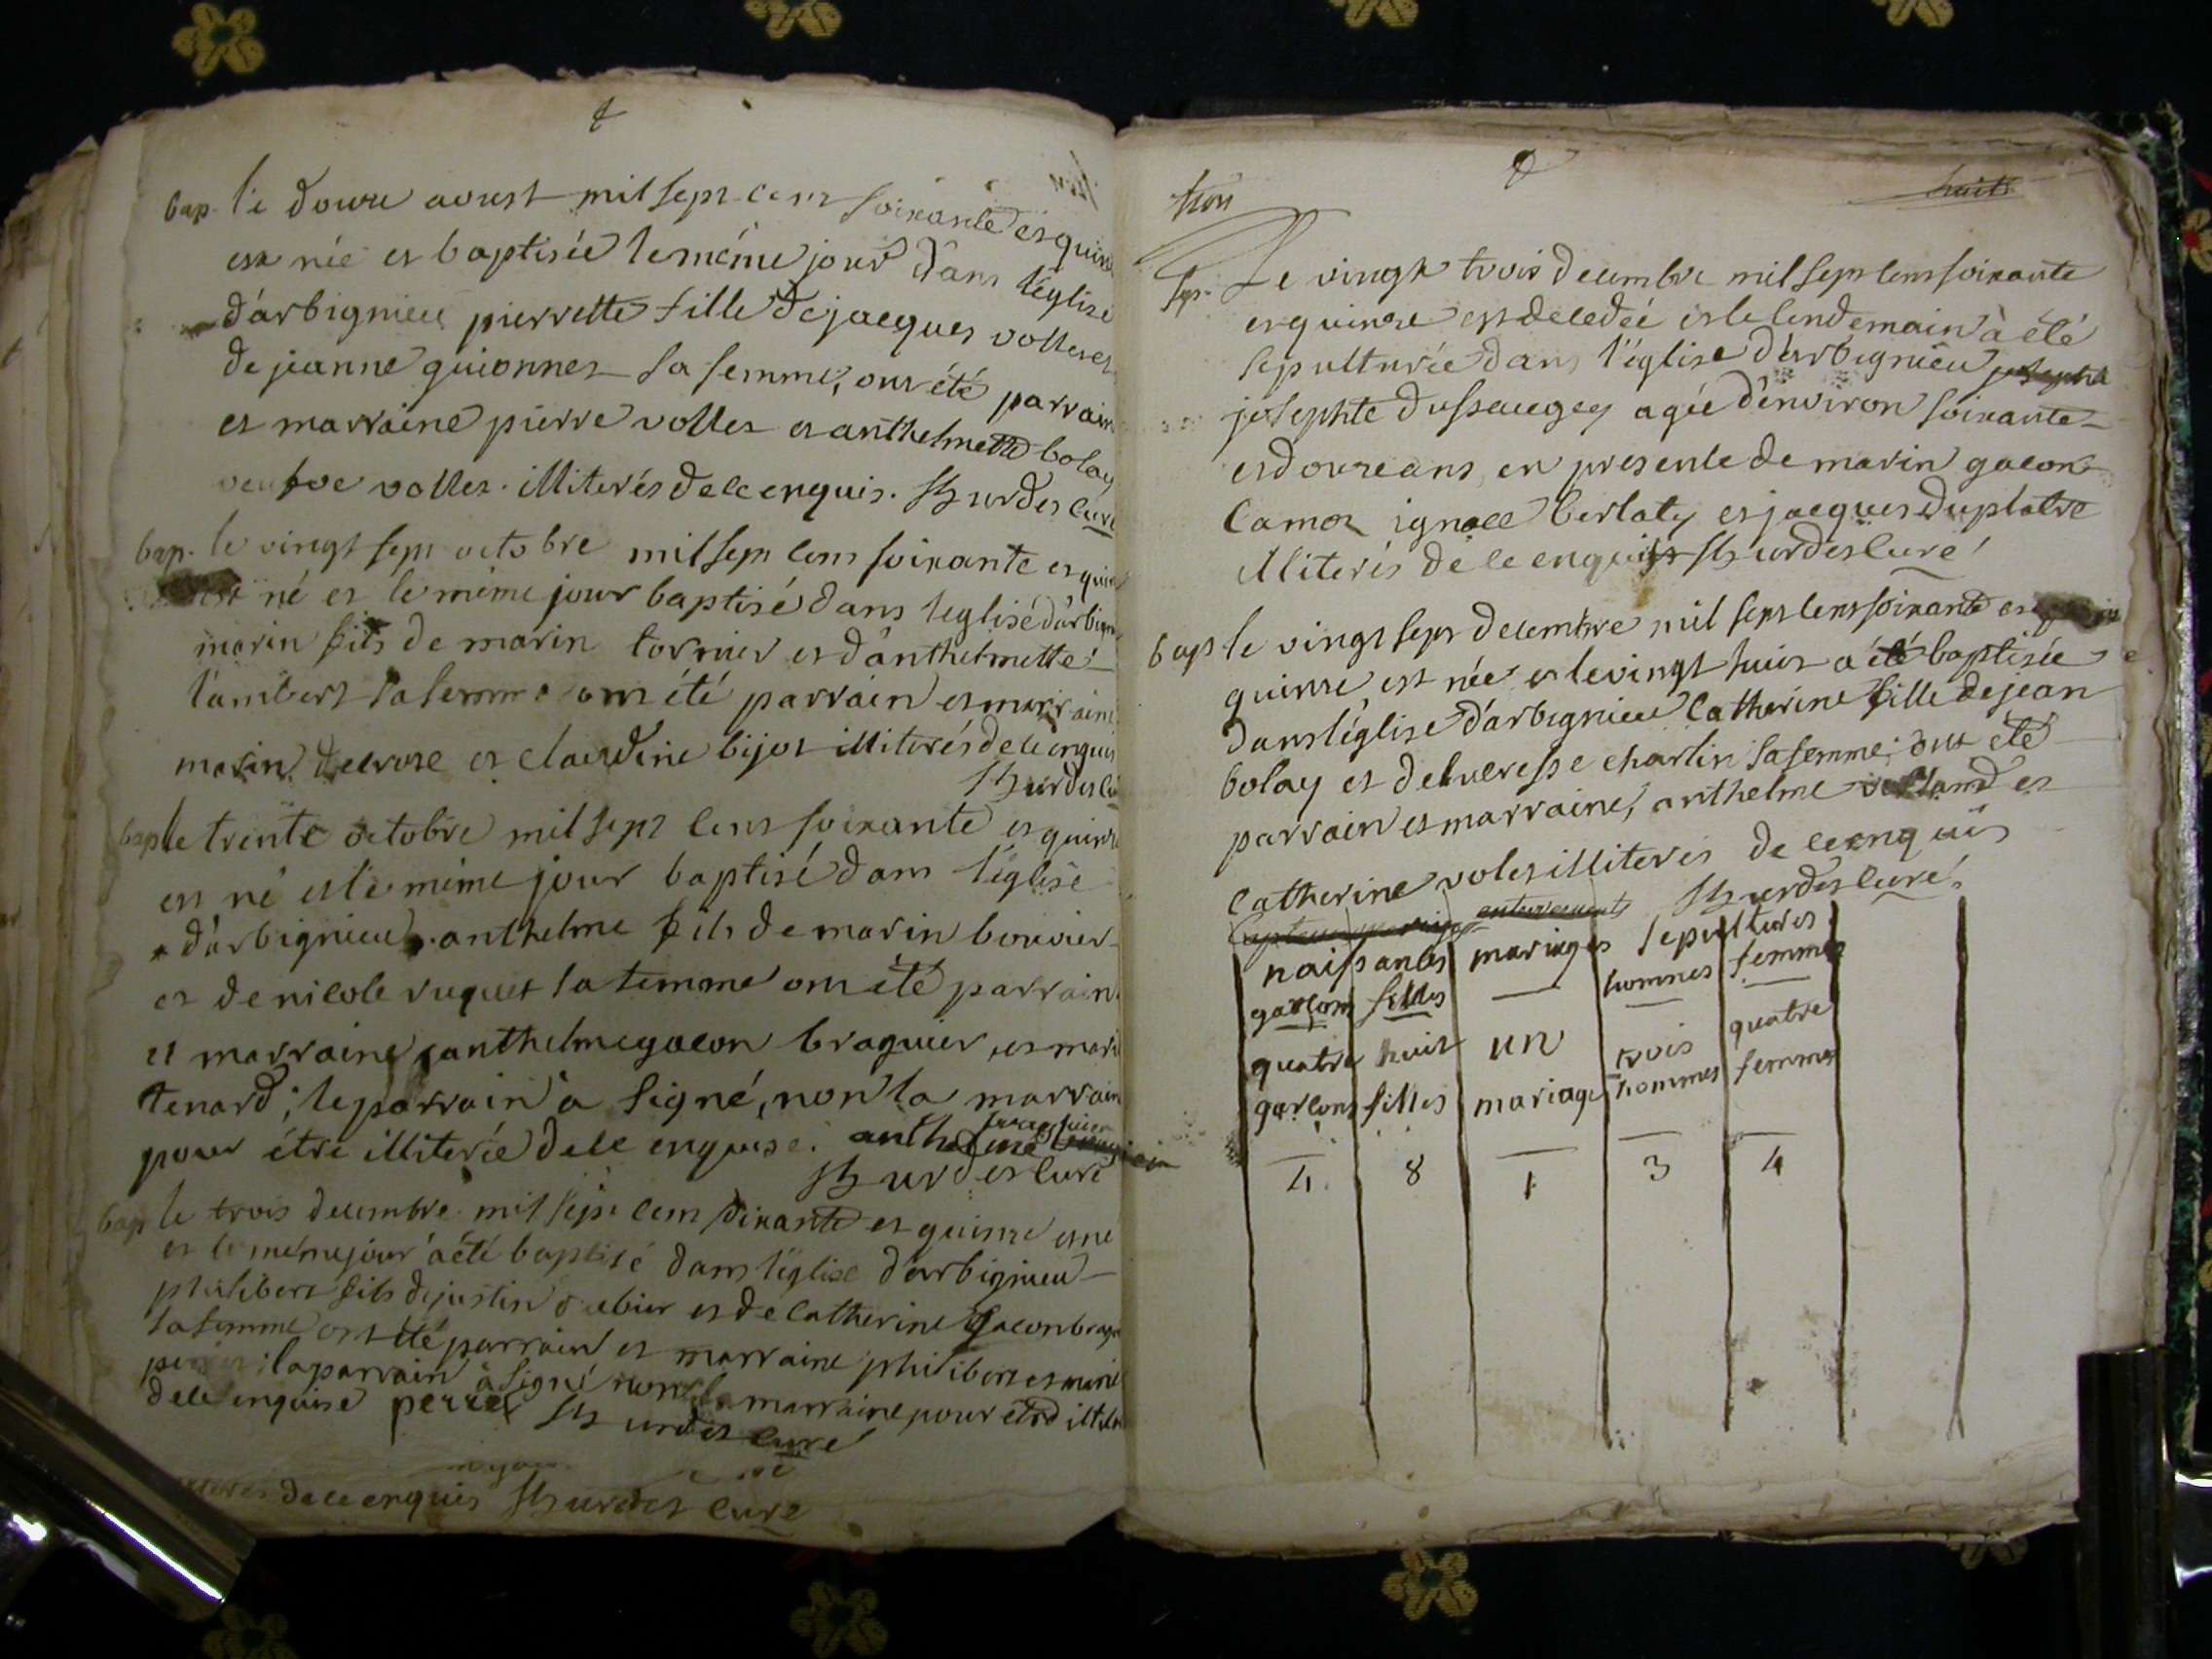 bap. le douze aoust mil sept cent soixante et quinze
est née et baptisée le méme jour dans l'église
d'arbignieu pierrette fille de jacques vollet et
de jeanne guionnet sa femme, ont été parrain
et marraine pierre vollet et anthelmette bolay
veufve vollet. illiterés de ce enquis. Sts urdet curé
bap. le vingt sept octobre mil sept cent soixante et quin
est né et le méme jour baptisé dans leglise d'arbign
marin fils de marin tornier et d'anthelmette
lambert sa femme ont été parrain et marraine
marin et claudine bijot illiterés de ce enquis
Sts urdet cu
bap le trente octobre mil sept cent soixante et quinze
est né et le méme jour baptisé dans l'église
d'arbignieu. anthelme fils de marin bouvier
et de nicole ruquet sa femme ont été parrain
et marraine anthelme gacon braquier, et mari
tenard; le parrain à signé, non la marrain
pour étre illiterée de ce enquise. anthelme
Sts urdet curé
bap le trois decembre mil sept cent soixante et quinze est né
et le méme jour à été baptisé dans l'église d'arbignieu
philibert fils de justin et de catherine gacon braq
sa femme ont été parrain et marraine philibert et marie
la parrain à signé non la marraine pour etre illite
de ce enquise perret Sts urdet curé
de ce enquis Sts urdet curé
huit
Sep. Le vingt trois decembre mil sept cent soixante
et quinze est decedée et le lendemain à été
sepulturée dans l'église d'arbignieu josephte
josephte dussaugey agée d'environ soixante
et douze ans, en presence de marin gacon
camoz ignace berlaty et jacques duplatre
illiterés de ce enquis Sts urdet curé
bap le vingt sept decembre mil sept cent soixante et
quinze est née et le vingt huit a été baptisée
dans l'église d'arbignieu catherine fille de jean
bolay et de lucresse charlin sa femme; ont été
parrain et marraine, anthelme et
catherine volet illiterés de ce enquis
Sts urdet curé.
enterrements
naissances mariages sepultures
garçons filles hommes femmes
quatre huit un trois quatre
garçons filles mariage hommes femmes
4 8 1 3 4